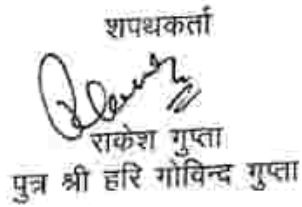 शपथकर्ता
राकेश गुप्ता
पुत्र श्री हरि गोविन्द गुप्ता